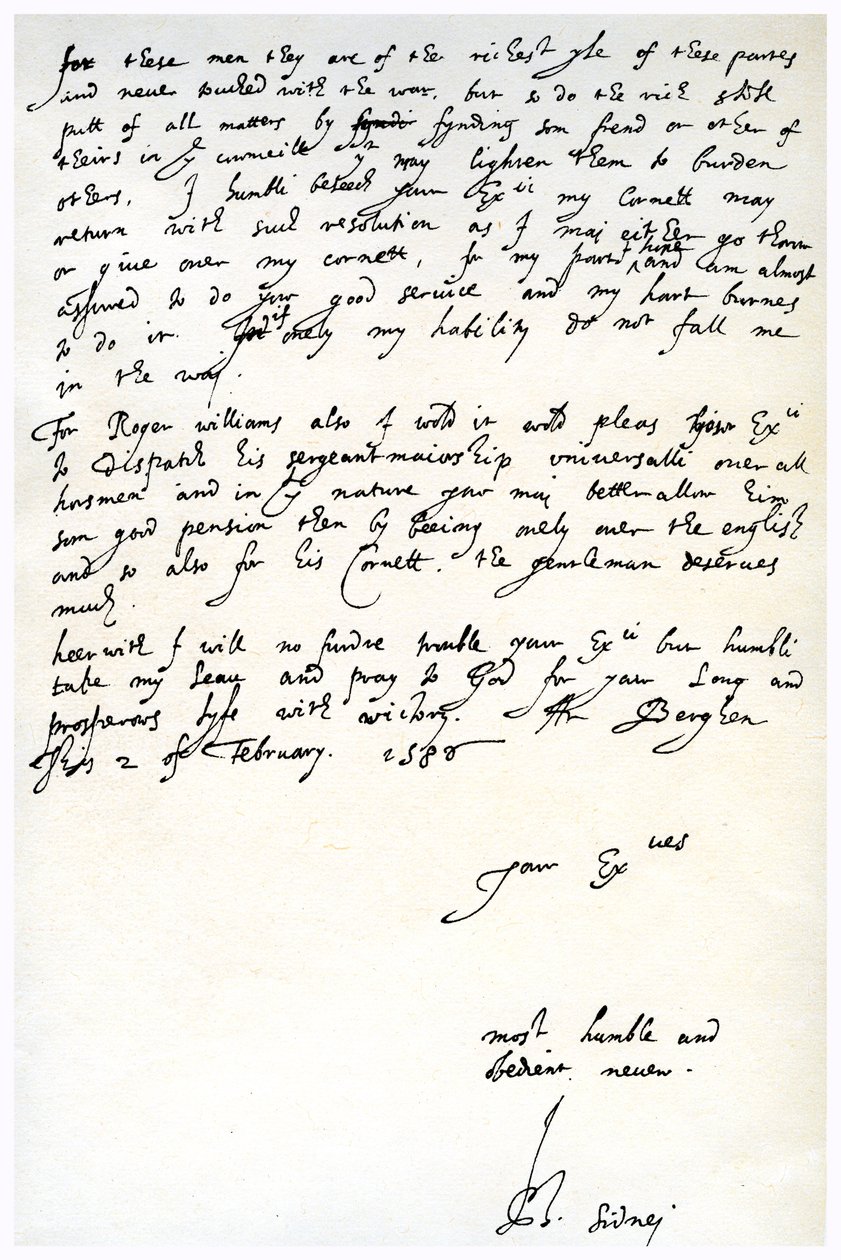 for these men they are of the richest yle of these partes
and never touched with the war, but so do the rich still
putt of all matters by fyndi fynding som frend or other of
theirs in ye cownceill yt may lighten them to burden
others. I humbli beseech yowr Exii my Cornett may
return with such resolution as I maj either go thorow
or give over my cornett, for my part I hope and am almost
assured to do yow good service and my hart burnes
to do it. if onely my hability do not fall me
in the waj.
For Roger williams also I wold it wold pleas yowr Exii
to dispatch his sergeantmaiorship universalli over all
horsmen and in yt nature yow maj better allow him
som good pension then by beeing onely over the english
and so also for his Cornett. the gentleman deserves
much.
heerwith I will no furdre trouble yowr Exii but humbli
take my leau and pray to God for yowr Long and
prosperows lyfe with victory. At Berghen
this 2 of February. 1586
yowr Exues
most humble and
obedient neuew.
Ph. Sidnei